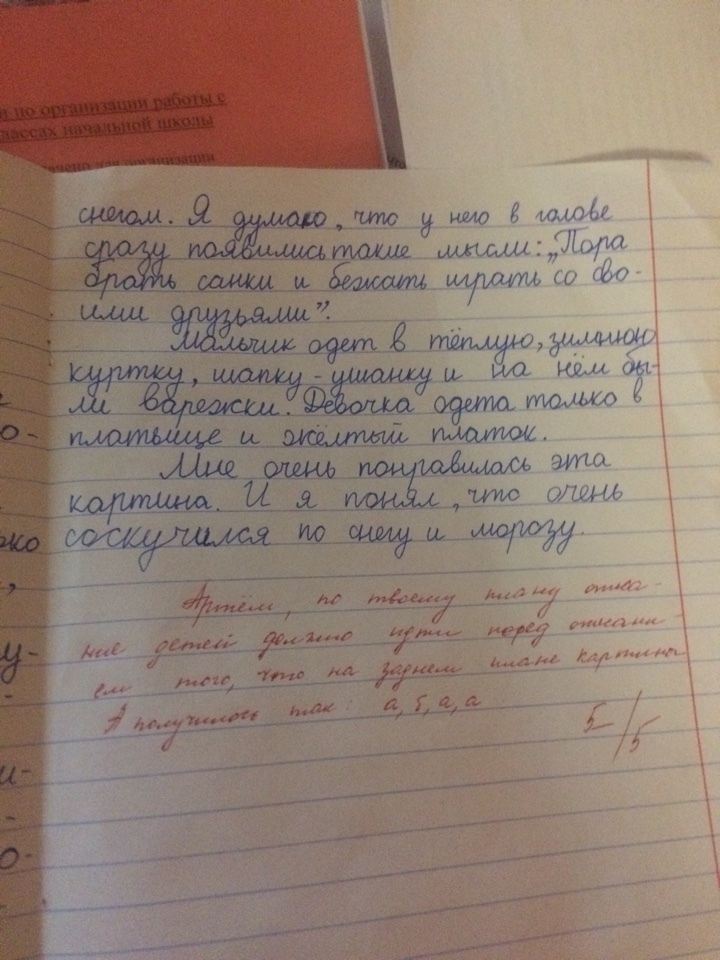 и по организации работы с
классах начальной школы
снегом. Я думаю, что у него в голове
сразу появились такие мысли: „Пора
брать санки и бежать играть со сво-
ими друзьями”.
Мальчик одет в тёплую, зимнюю
куртку, шапку-ушанку и на нём бы-
ли варежки. Девочка одета только в
платьице и жёлтый платок.
Мне очень понравилась эта
картина. И я понял, что очень
соскучился по снегу и морозу.
Артём, по твоему плану описа-
ние детей должно идти перед описани-
ем того, что на заднем плане картины
А получилось так: а, б, а, а
5/5